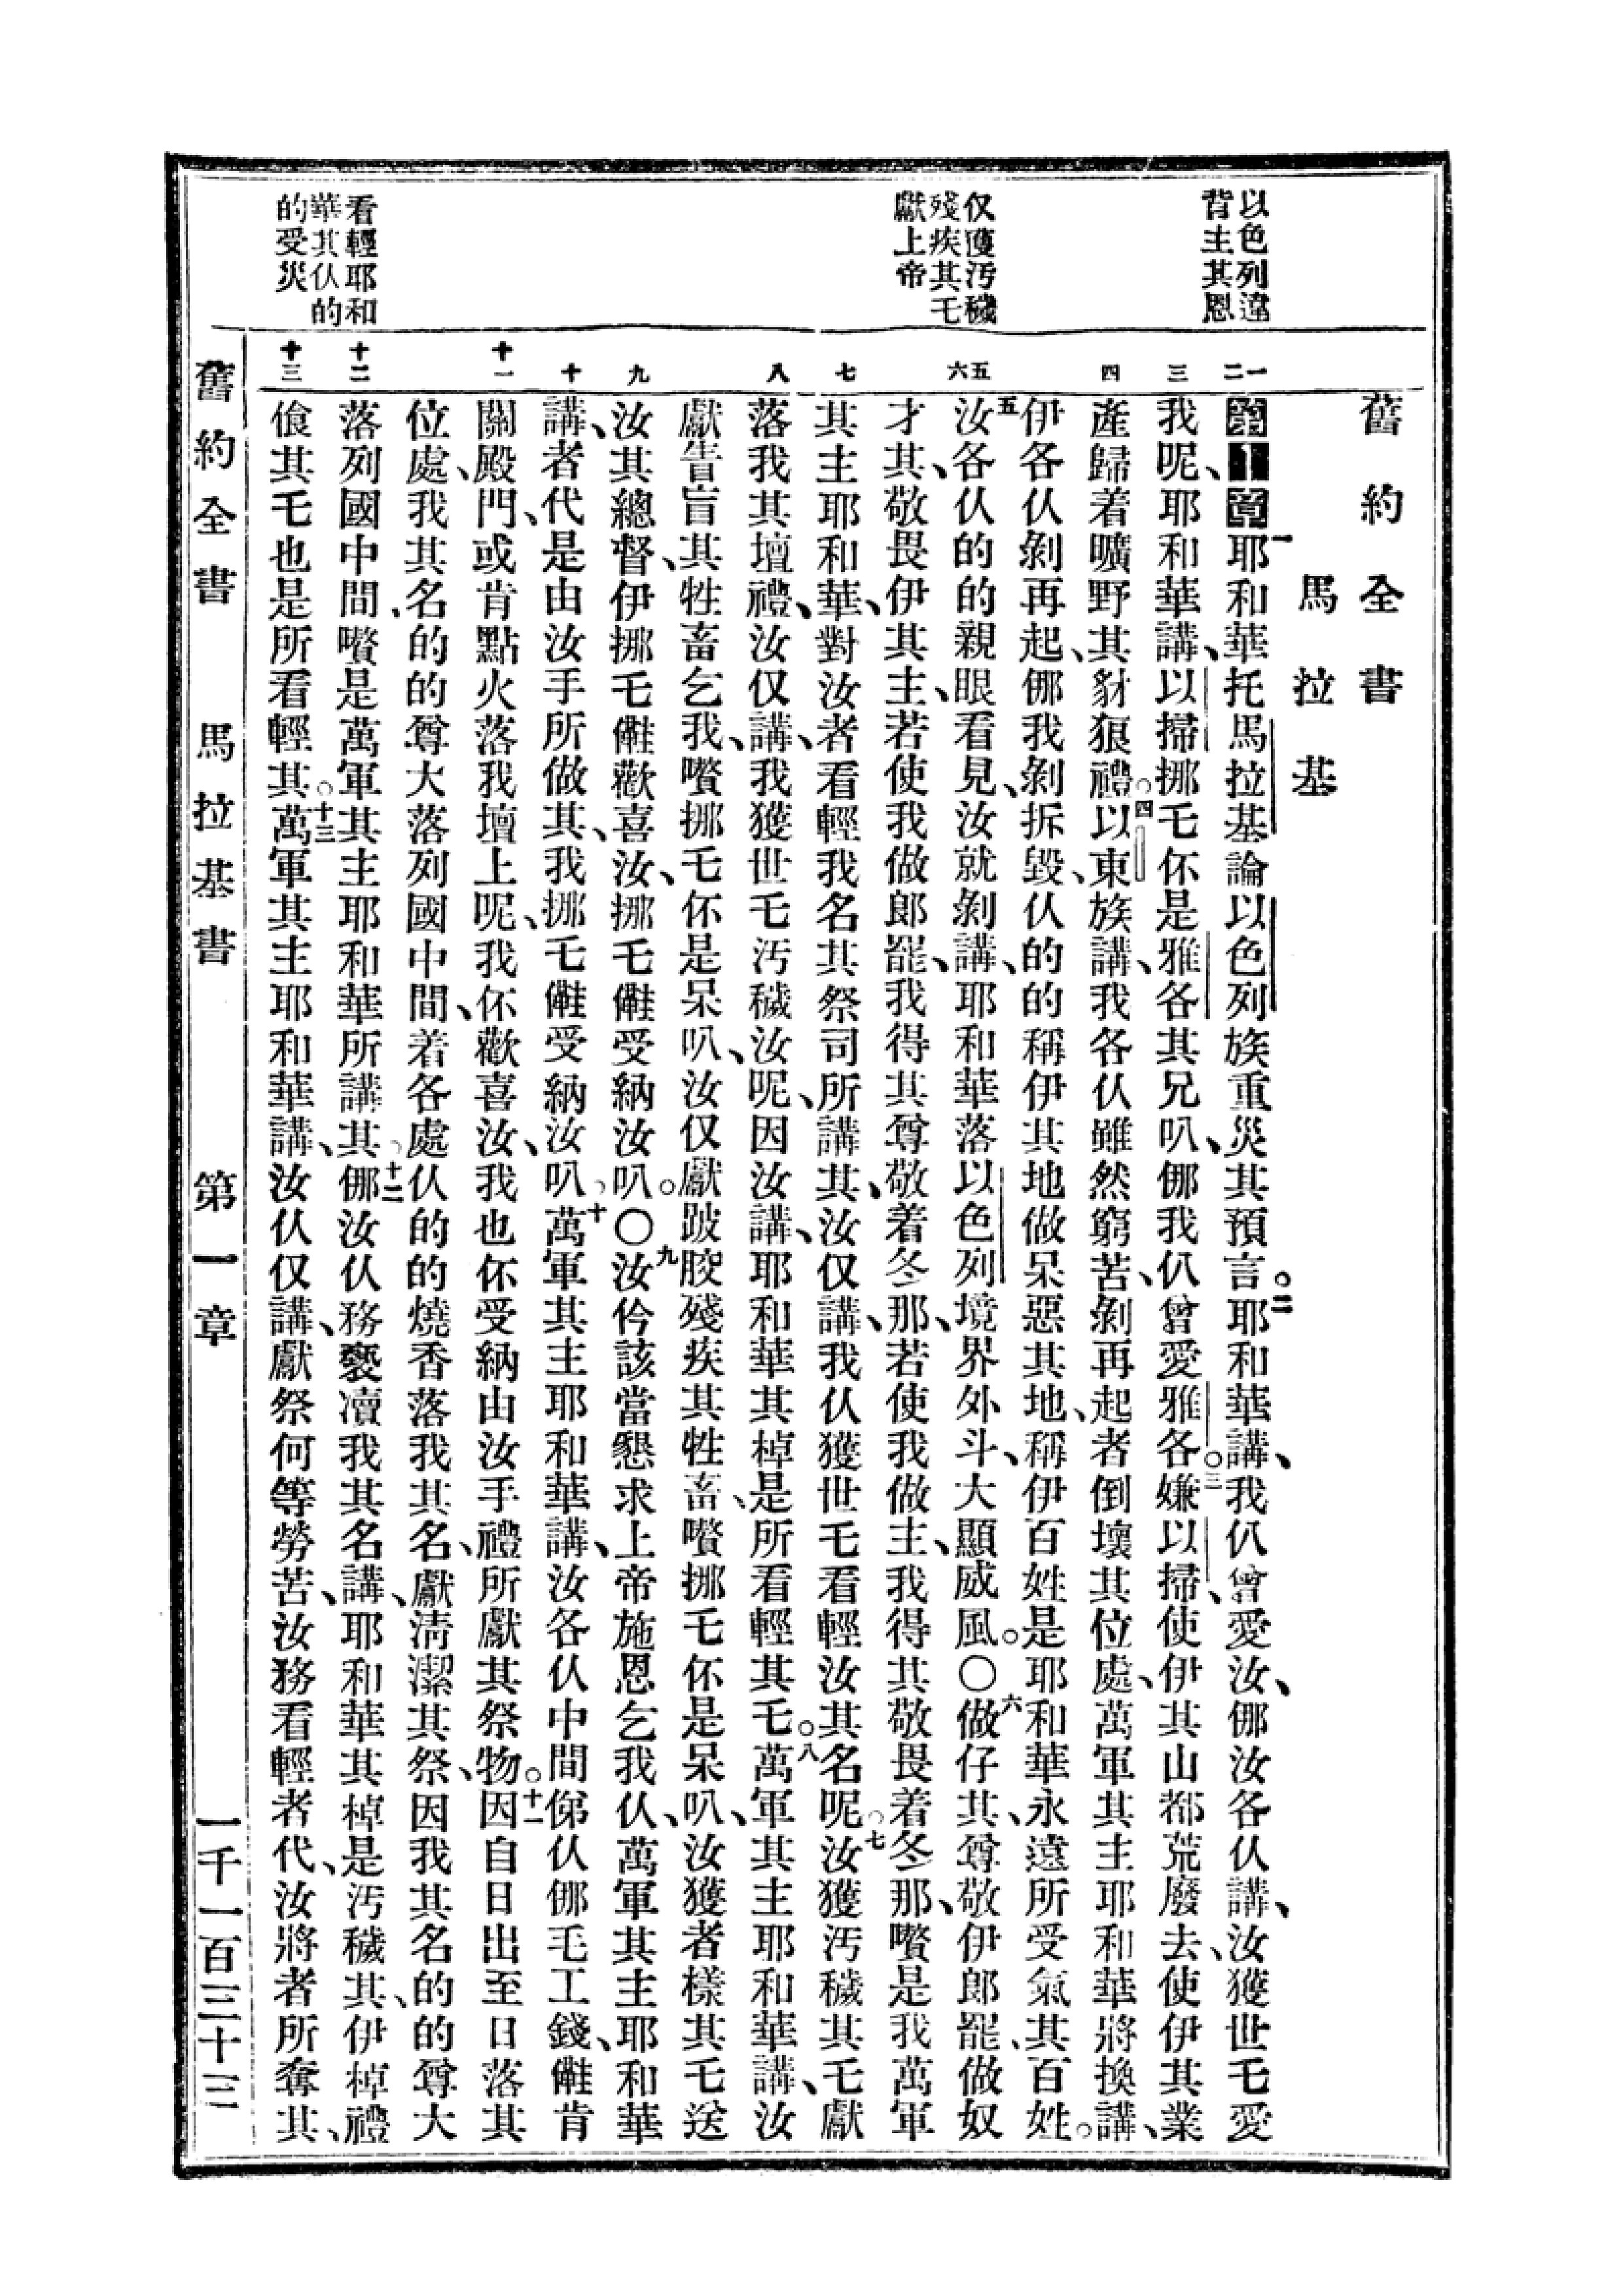 舊約全書
馬拉基
以色列違
背主其恩
仅獲污穢
殘疾其乇
獻上帝
看輕耶和
華其仈的
的受災
一 二 三 四 五 六 七 八 九 十 十一 十二 十三
第一章 一耶和華托馬拉基論以色列族重災其預言。二耶和華講、我仈曾愛汝、㑚汝各仈講、汝獲世乇愛
我呢、耶和華講、以掃挪乇伓是雅各其兄叭、㑚我仈曾愛雅各。三嫌以掃、使伊其山都荒廢去、使伊其業
產歸着曠野其豺狼禮。四以東族講、我各仈雖然窮苦、剝再起者倒壞其位處、萬軍其主耶和華將換講、
伊各仈剝再起、㑚我剝拆毀、仈的的稱伊其地做呆惡其地、稱伊百姓是耶和華永遠所受氣其百姓。
五汝各仈的的親眼看見、汝就剝講、耶和華落以色列境界外斗、大顯威風。〇六做仔其、尊敬伊郎罷、做奴
才其、敬畏伊其主、若使我做郎罷、我得其尊敬着冬那、若使我做主、我得其敬畏着冬那、嚽是我萬軍
其主耶和華、對汝者看輕我名其祭司所講其、汝仅講、我仈獲世乇看輕汝其名呢。七汝獲污穢其乇獻
落我其壇禮、汝仅講、我獲世乇污穢汝呢、因汝講、耶和華其棹是所看輕其乇。八萬軍其主耶和華講、汝
獻眚盲其牲畜乞我、嚽挪乇伓是呆叭、汝仅獻跛骹殘疾其牲畜、嚽挪乇伓是呆叭、汝獲者樣其乇送
汝其總督、伊挪乇𣍐歡喜汝、挪乇𣍐受納汝叭。〇九汝仱該當懇求上帝施恩乞我仈、萬軍其主耶和華
講、者代是由汝手所做其、我挪乇𣍐受納汝叭。十萬軍其主耶和華講、汝各仈中間㑚仈㑚毛工錢、𣍐肯
關殿門、或肯點火落我壇上呢、我伓歡喜汝、我也伓受納由汝手禮所獻其祭物。十一因自日出至日落其
位處、我其名的的尊大落列國中間、着各處仈的的燒香落我其名、獻清潔其祭、因我其名的的尊大
落列國中間、嚽是萬軍其主耶和華所講其。十二㑚汝仈務褻瀆我其名、講耶和華其棹是污穢其、伊棹禮
飡其乇也是所看輕其。十三萬軍其主耶和華講、汝仈仅講、獻祭何等勞苦、汝務看輕者代、汝將者所奪其、
舊約全書 馬拉基書 第一章 一千一百三十三